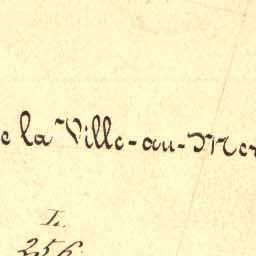 e la Ville-au-Mer
I.
256